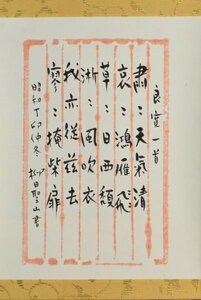 良寛一首
肅〻天氣清
哀〻鴻雁飛
草〻日西頽
淅〻風吹衣
我亦従茲去
寥〻掩柴扉
昭和丁卯仲冬 柳田聖山書